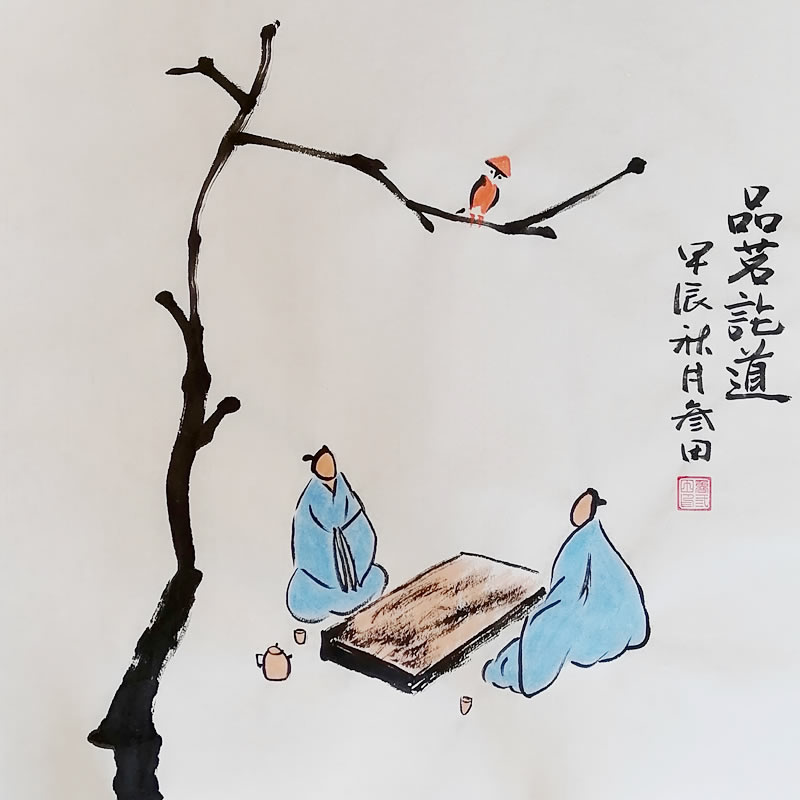 品茗論道
甲辰秋月参田